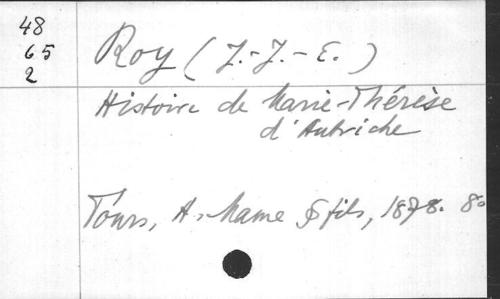 48
65
2
Roy (J.-J.-E.)
Histoire de Marie-Thérèse
d'Autriche
Tours, A. Mame & fils, 1878. 8º